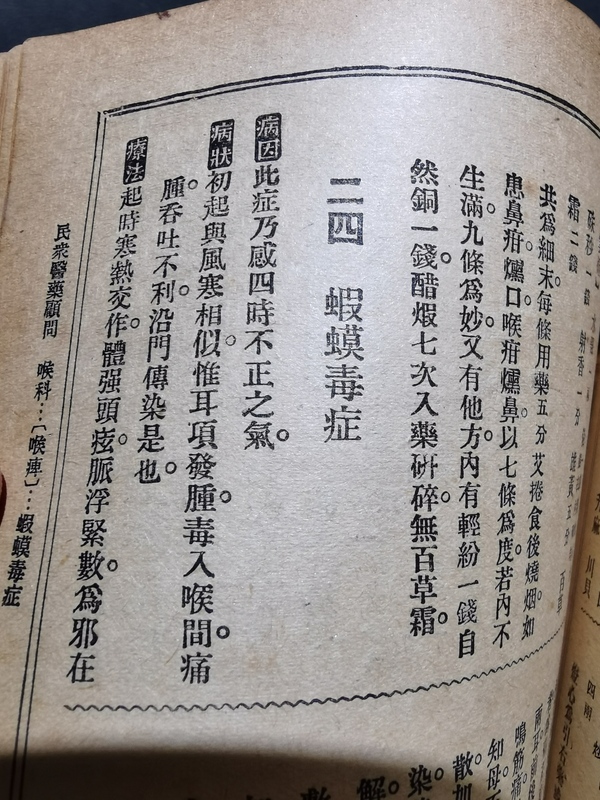 霜二錢
共爲細末。每條用藥五分。艾捲食後燒烟。如
患鼻疳。爋口。喉疳爋鼻。以七條爲度。若內不
生滿。九條爲妙。又有他方。內有輕紛一錢。自
然銅一錢。醋煅七次入藥硏碎。無百草霜。
二四 蝦蟆毒症
病因此症乃感四時不正之氣。
病狀初起與風寒相似。惟耳項發腫。毒入喉間。痛
腫。吞吐不利。沿門傳染是也。
療法起時寒熱交作。體强頭痃。脈浮緊數。爲邪在
民衆醫藥顧問 喉科…〔喉痺〕… 蝦蟆毒症
川貝
四兩
鳴筋痛
知母
散加
染。
解。